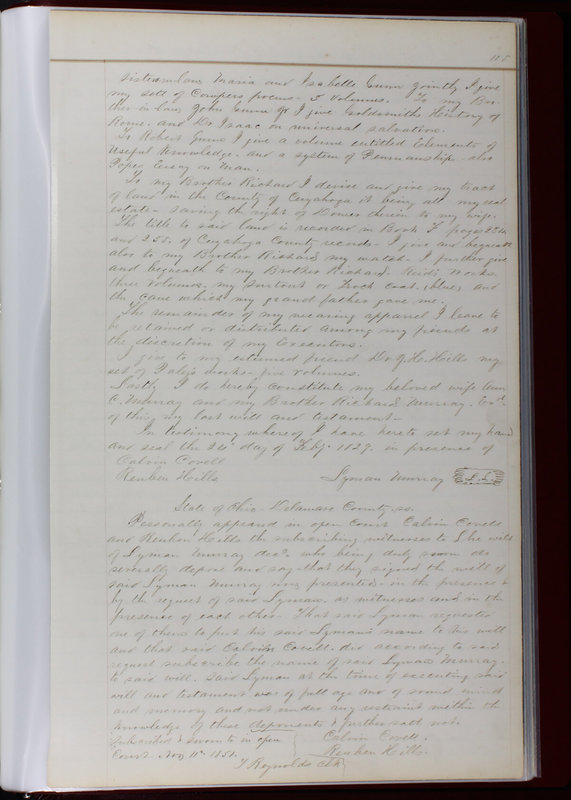 115
Sister-in-laws Maria and Isabella Gunn jointly I give
my sett of Cowpers poems - 3 Volumes. To my Bro-
ther-in-law John Gunn Jr I give Goldsmiths History of
Rome. and Dr Isaac on universal salvation.
To Robert Gunn I give a volume entitled Elements of
Useful Knowledge. and a system of Penmanship - also
Popes Essay on Man.
To my Brother Richard I devise and give my tract
of land in the County of Cuyahoga it being all my real
estate - saving the right of Dower therein to my wife.
The title to said land is recorded in Book F pages 254
and 255. of Cuyahoga County records - I give and bequeath
also to my Brother Richard my watch - I further give
and bequeath to my Brother Richard Reids Works.
three volumes, my Surtout or Frock coat, (blue) and
the cane which my grand father gave me.
The remainder of my wearing apparel I leave to
be retained or distributed among my friends at
the discretion of my Executors.
I give to my esteemed friend Dr. J. H. Hills my
set of Paleys works - five volumes.
Lastly I do hereby constitute my beloved wife Ann
C. Murray and my Brother Richard Murray. Exrs.
of this my last will and testament -
In testimony whereof I have hereto set my hand
and seal the day of Feby. 1829. in presence of
Calvin Covell
Reuben Hills Lyman Murray L.S.
State of Ohio. Delaware County. ss.
Personally appeared in open Court Calvin Covell
and Reuben Hills the subscribing witnesses to the will
of Lyman Murray decd. who being duly sworn do
severally depose and say - that they signed the will of
said Lyman Murray now presented - in the presence &
by the request of said Lyman. as witnesses and in the
presence of each other - That said Lyman requested
one of them to put his said Lyman's name to his will
and that said Calvin Covell. did according to said
request subscribe the name of said Lyman Murray.
to said will. Said Lyman at the time of executing said
will and testament was of full age and of sound mind
and memory and not under any restraint within the
knowledge of these deponents & further saith not.
Subscribed & sworn to in open Calvin Covell.
Court. Reuben Hills.
T Reynolds Clk